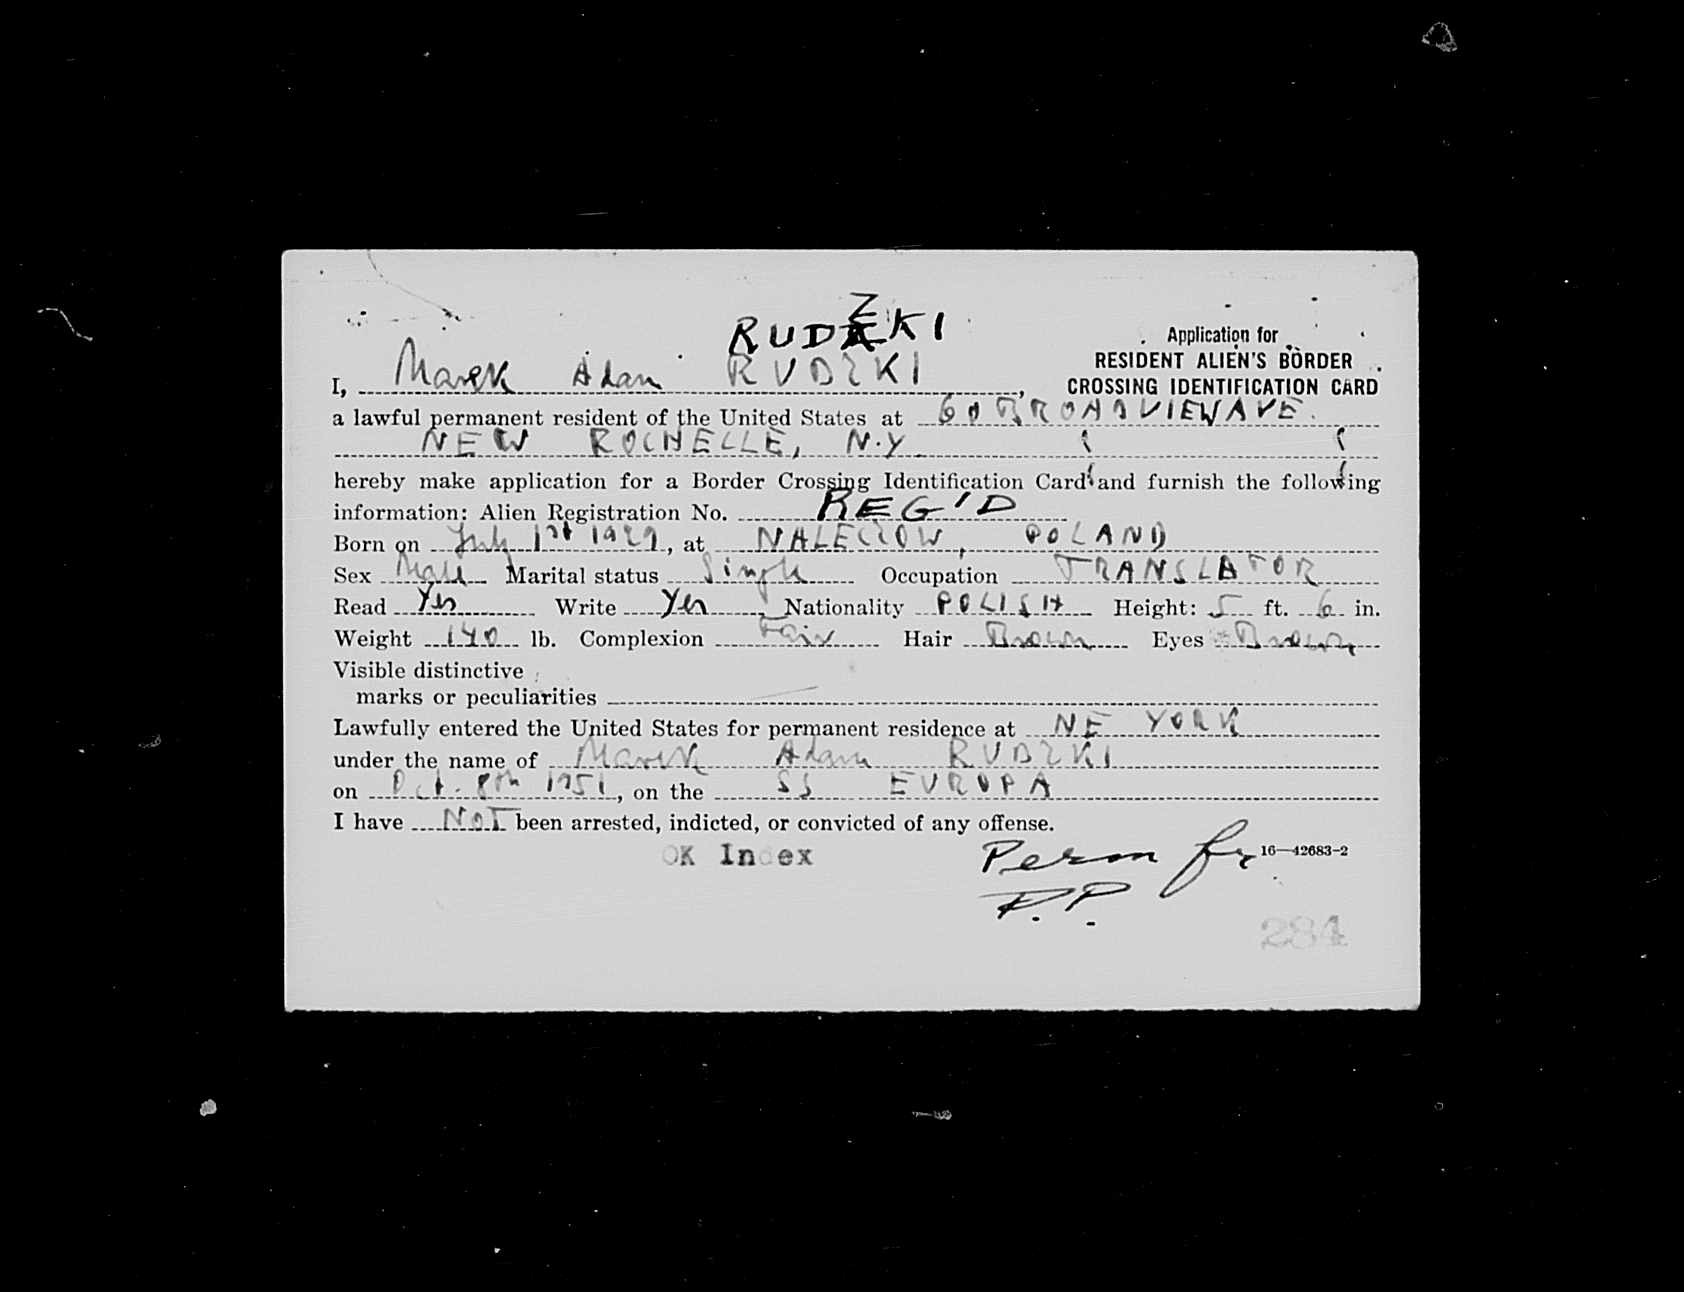 RUDZKI
Application for
RESIDENT ALIEN'S BORDER
CROSSING IDENTIFICATION CARD
I, Marek Adam RUDZKI,
a lawful permanent resident of the United States at 60 BROADVIEW AVE.
NEW ROCHELLE, N.Y
hereby make application for a Border Crossing Identification Card and furnish the following
information: Alien Registration No. REG'D
Born on July 1st 1929, at NALECZOW, POLAND
Sex Male Marital status Single Occupation TRANSLATOR
Read Yes Write Yes Nationality POLISH Height: 5 ft. 6 in.
Weight 140 lb. Complexion Fair Hair Brown Eyes Brown
Visible distinctive
marks or peculiarities
Lawfully entered the United States for permanent residence at NE YORK
under the name of Marek Adam RUDZKI
on Oct. 8th 1951, on the SS EUROPA
I have NOT been arrested, indicted, or convicted of any offense.
OK Index
Perm fr
P.P.
16—42683-2
284